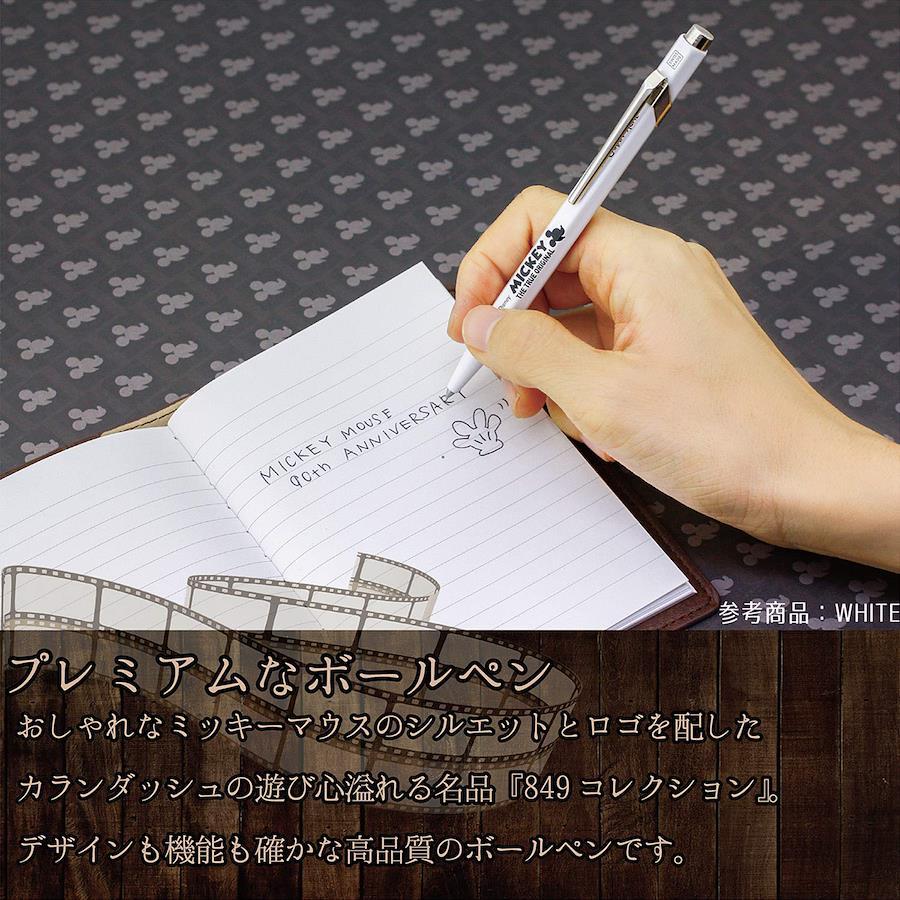 SWISS MADE
MICKEY
THE TRUE ORIGINAL
Disney
MICKEY MOUSE
90th ANNIVERSARY
参考商品：WHITE
プレミアムなボールペン
おしゃれなミッキーマウスのシルエットとロゴを配した
カランダッシュの遊び心溢れる名品『849 コレクション』。
デザインも機能も確かな高品質のボールペンです。